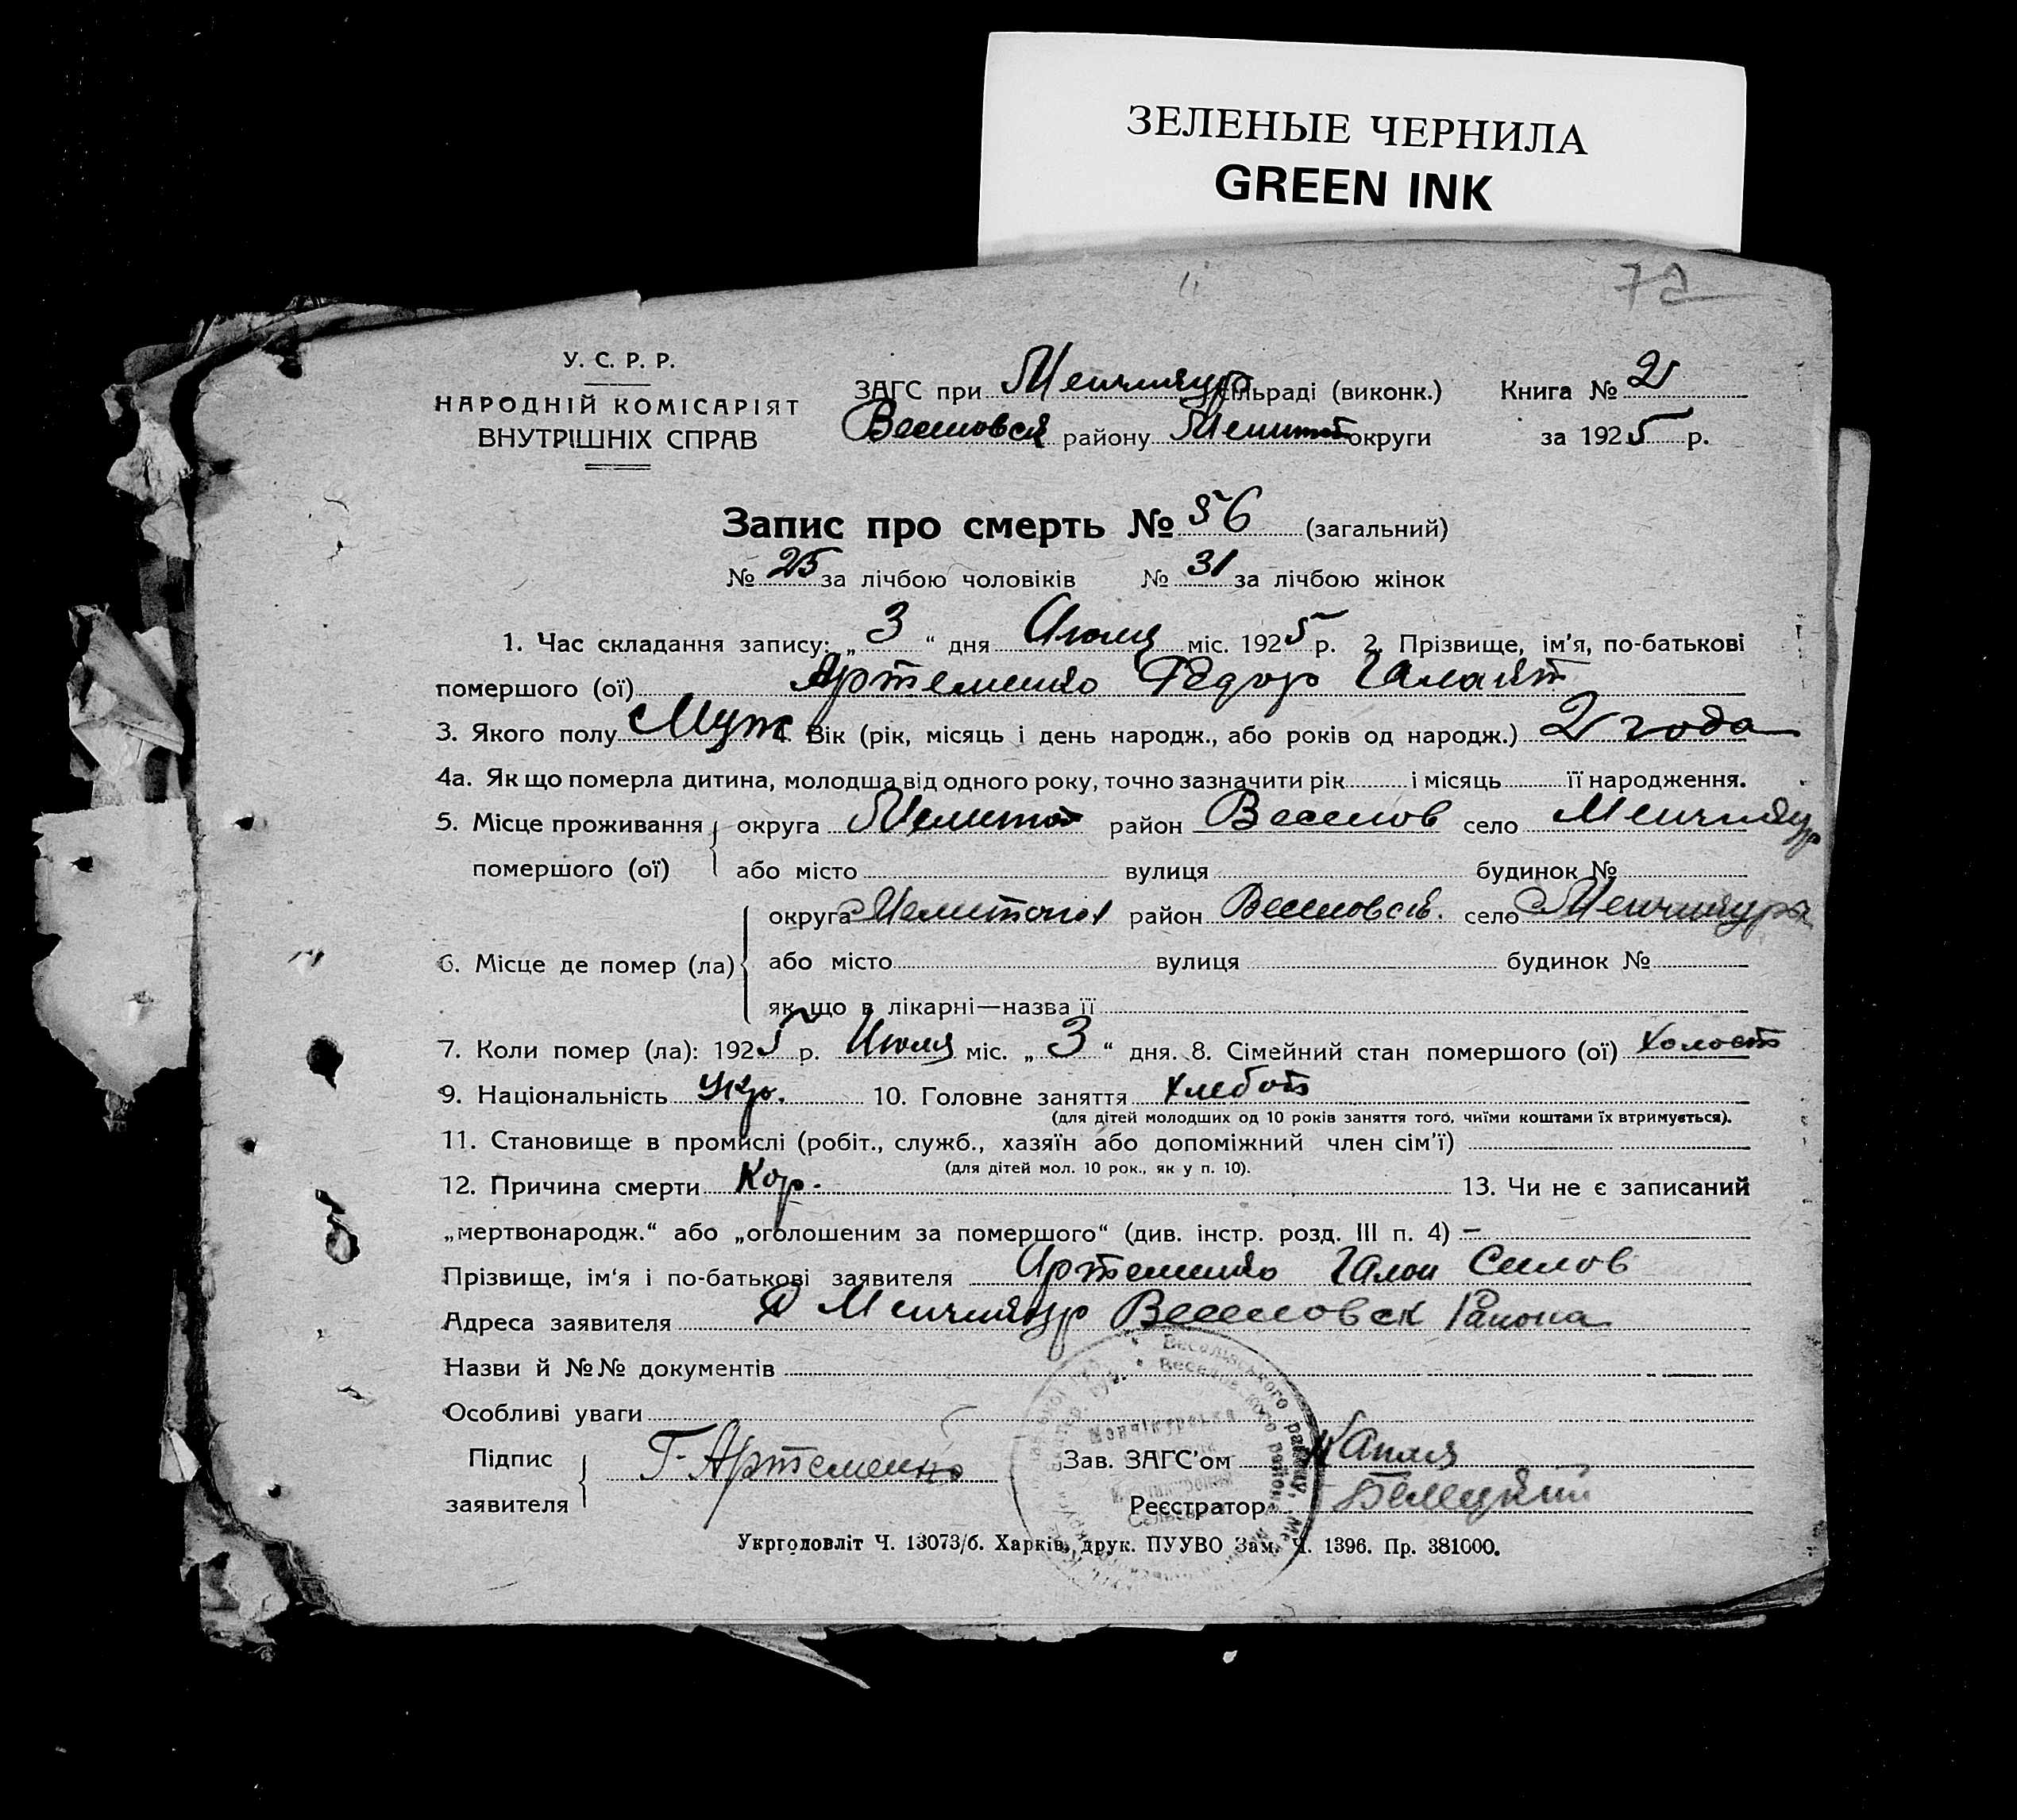 ЗЕЛЕНЫЕ ЧЕРНИЛА
GREEN INK
72
У. С. Р. Р.
НАРОДНІЙ КОМІСАРІЯТ
ВНУТРІШНІХ СПРАВ
ЗАГС при Менчикур сільраді (виконк.)
Веселовск району Мелитоп округи
Книга № 2
за 1925 р.
Запис про смерть № 56 (загальний)
№ 25 за лічбою чоловіків № 31 за лічбою жінок
1. Час складання запису: „ 3 “ дня Июля міс. 1925 р. 2. Прізвище, ім'я, по-батькові
помершого (ої) Артеменко Федор
3. Якого полу Муж 4. Вік (рік, місяць і день народж., або років од народж.) 2 года
4а. Як що померла дитина, молодша від одного року, точно зазначити рік і місяць її народження.
5. Місце проживання помершого (ої) округа Мелитоп район Веселов село Менчикур
або місто вулиця будинок №
6. Місце де помер (ла) округа Мелитопол район Веселовск. село Менчикуры
або місто вулиця будинок №
як що в лікарні—назва її
7. Коли помер (ла): 1925 р. Июля міс. „ 3 “ дня. 8. Сімейний стан помершого (ої) холост
9. Національність Укр. 10. Головне заняття хлебоп
(для дітей молодших од 10 років заняття того, чиїми коштами їх втримується).
11. Становище в промислі (робіт., служб., хазяїн або допоміжний член сім'ї)
(для дітей мол. 10 рок., як у п. 10).
12. Причина смерти Кор. 13. Чи не є записаний
„мертвонародж.“ або „оголошеним за помершого“ (див. інстр. розд. III п. 4) –
Прізвище, ім'я і по-батькові заявителя Артеменко Силов
Адреса заявителя Менчикур Веселовск Района
Назви й №№ документів
Особливі уваги
Підпис заявителя Г. Артеменко
Зав. ЗАГС'ом
Реєстратор Белецкий
Укрголовліт Ч. 13073/б. Харків, друк. ПУУВО Зам. Ч. 1396. Пр. 381000.